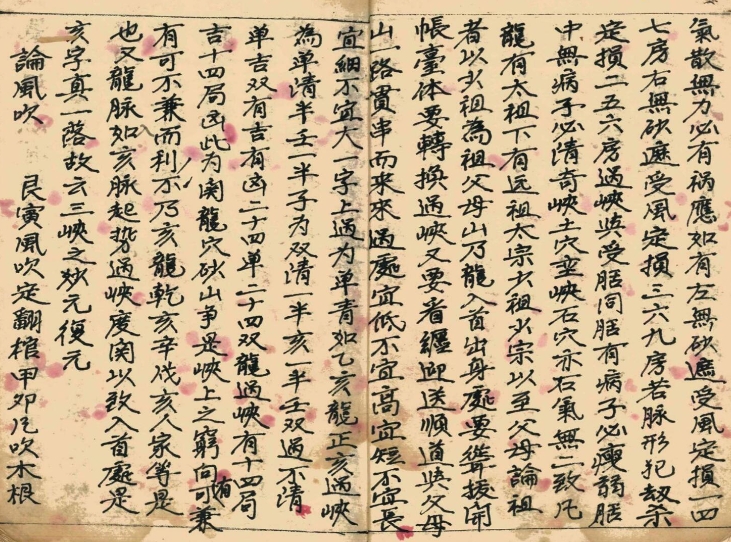 氣散無力必有祸應如有左無砂遮受風定損一四
七房右無砂遮受風定損三六九房若脉形犯刼杀
定損二五六房過峽與受胎同胎有病子必瘦弱胎
中無病子必清奇峽土穴土峽石穴亦石氣無二致凡
龍有太祖下有远祖太宗少祖少宗以至父母論祖
者以少祖為祖父母山乃龍入首出身處要聳拔開
帳臺体要轉換過峽又要看纏迎送順道與父母
山一路貫串而来来過處宜低不宜高宜短不宜長
宜細不宜大一字上過为单青如乙亥龍正亥過峽
為单清半壬一半子为双清一半亥一半壬双過不清
单吉双有吉有凶二十四单二十四双龍過峽有十四局
吉十四局凶此为関龍穴砂山爭是峽上之窮向可兼
有可不兼而利不乃亥龍乾亥辛戌亥人家等是
也又龍脉如亥脉起势過峽度関以致入首處是
亥字真一落故云三峽之妙元復元
論風吹　艮寅風吹定翻棺甲卯凡吹木根